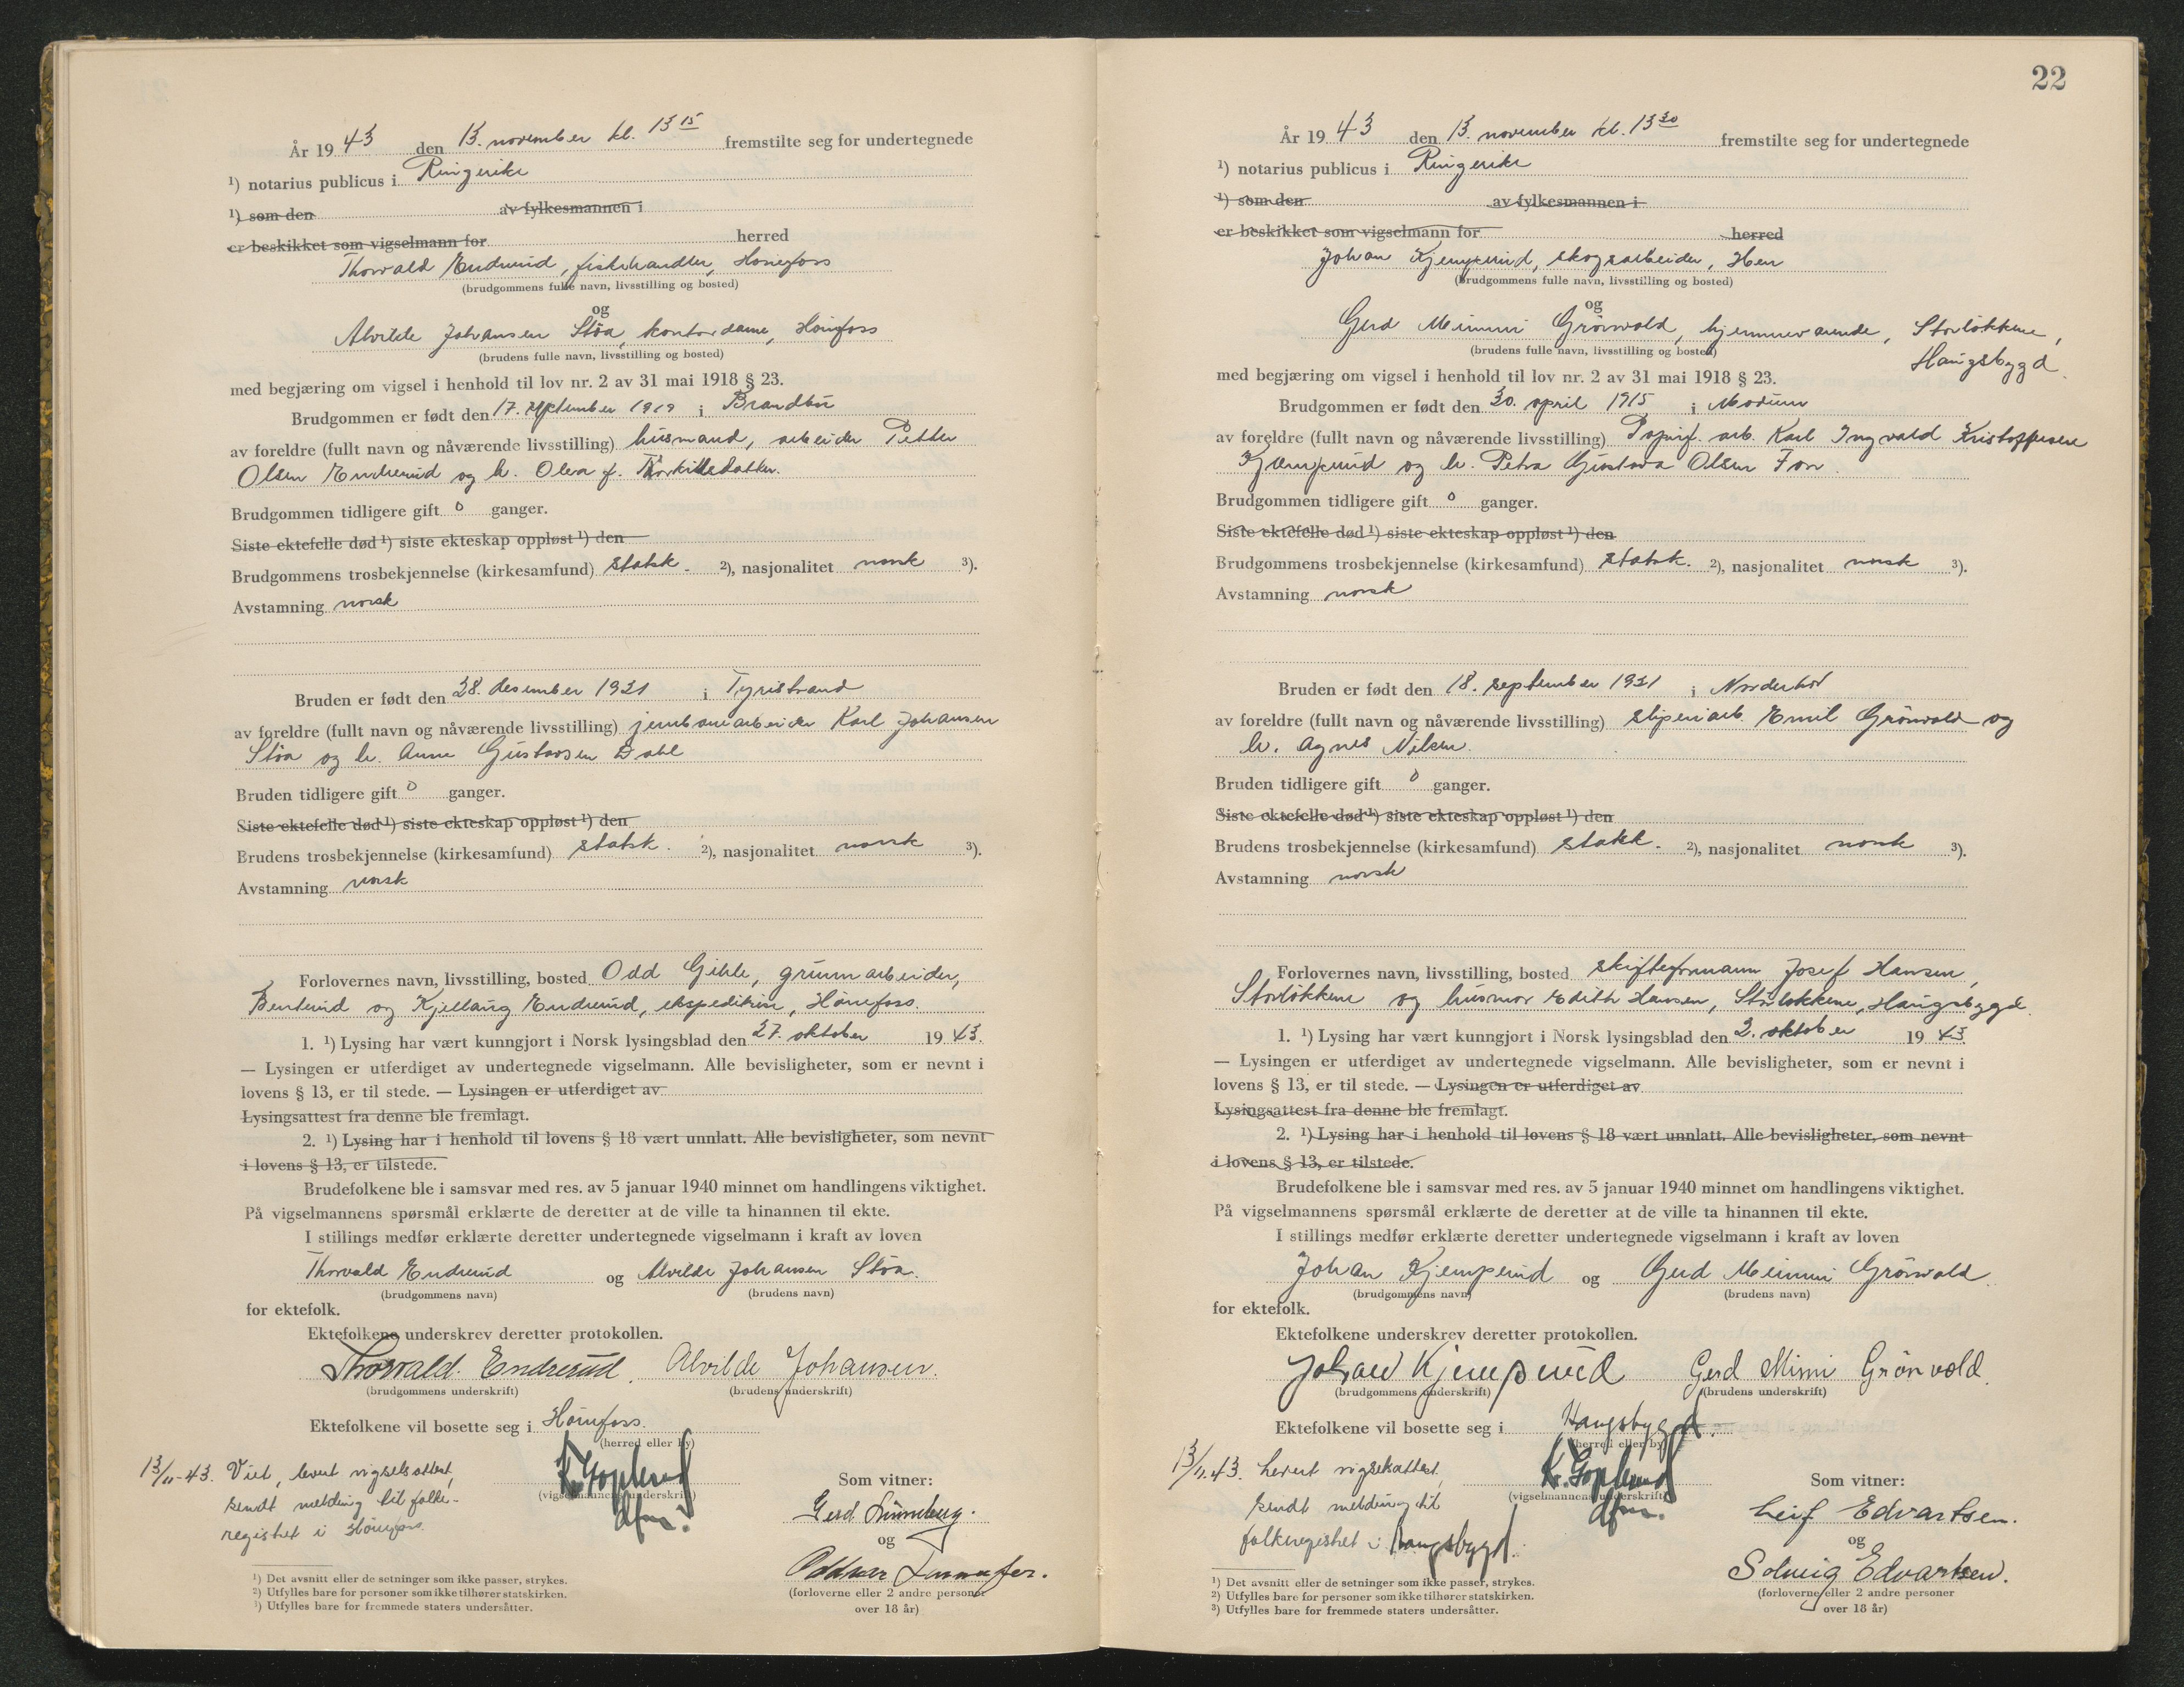 År 19 43 den 13. november kl. 13 15 fremstilte seg for undertegnede
1) notarius publicus i Ringerike
1) som den av fylkesmannen i
er beskikket som vigselmann for herred
Thorvald Endrerud, fiskehandler, Hönefoss
(brudgommens fulle navn, livsstilling og bosted)
og
Alvilde Johansen Stöa, kontordame, Hönefoss
(brudens fulle navn, livsstilling og bosted)
med begjæring om vigsel i henhold til lov nr. 2 av 31 mai 1918 § 23.
Brudgommen er født den 17. september 1919 i Brandbu
av foreldre (fullt navn og nåværende livsstilling) husmand, arbeider Petter
Olsen Endrerud og h. Olea f. Torkilsdatter.
Brudgommen tidligere gift 0 ganger.
Siste ektefelle død 1) siste ekteskap oppløst 1) den
Brudgommens trosbekjennelse (kirkesamfund) statsk. 2), nasjonalitet norsk 3).
Avstamning norsk
Bruden er født den 28. desember 1921 i Tyristrand
av foreldre (fullt navn og nåværende livsstilling) jernbanearbeider Karl Johansen
Stöa og h. Anne Gustavsen Dahl
Bruden tidligere gift 0 ganger.
Siste ektefelle død 1) siste ekteskap oppløst 1) den
Brudens trosbekjennelse (kirkesamfund) statsk. 2), nasjonalitet norsk 3).
Avstamning norsk
Forlovernes navn, livsstilling, bosted Odd Gihle, gruvearbeider,
og Kjellaug Endrerud, ekspeditrise, Hönefoss.
1. 1) Lysing har vært kunngjort i Norsk lysingsblad den 27. oktober 19 43.
— Lysingen er utferdiget av undertegnede vigselmann. Alle bevisligheter, som er nevnt i
lovens § 13, er til stede. — Lysingen er utferdiget av
Lysingsattest fra denne ble fremlagt.
2. 1) Lysing har i henhold til lovens § 18 vært unnlatt. Alle bevisligheter, som nevnt
i lovens § 13, er tilstede.
Brudefolkene ble i samsvar med res. av 5 januar 1940 minnet om handlingens viktighet.
På vigselmannens spørsmål erklærte de deretter at de ville ta hinannen til ekte.
I stillings medfør erklærte deretter undertegnede vigselmann i kraft av loven
Thorvald Endrerud og Alvilde Johansen Stöa.
(brudgommens navn) (brudens navn)
for ektefolk.
Ektefolkene underskrev deretter protokollen.
Thorvald Endrerud. Alvilde Johansen.
(brudgommens underskrift) (brudens underskrift)
Ektefolkene vil bosette seg i Hönefoss.
(herred eller by)
13/11-43. Viet, levert vigselsattest,
sendt melding til folke-
registret i Hönefoss.
(vigselmannens underskrift)
Som vitner:
Gerd
og
(forloverne eller 2 andre personer
over 18 år)
1) Det avsnitt eller de setninger som ikke passer, strykes.
2) Utfylles bare for personer som ikke tilhører statskirken.
3) Utfylles bare for fremmede staters undersåtter.
22
År 19 43 den 13. november kl. 13 30 fremstilte seg for undertegnede
1) notarius publicus i Ringerike
1) som den av fylkesmannen i
er beskikket som vigselmann for herred
Johan Kjemperud, skogsarbeider, Hen
(brudgommens fulle navn, livsstilling og bosted)
og
Gerd Mimmi Grönvold, hjemmeværende, Storlökkene,
Haugsbygd
(brudens fulle navn, livsstilling og bosted)
med begjæring om vigsel i henhold til lov nr. 2 av 31 mai 1918 § 23.
Brudgommen er født den 30. april 1915 i Modum
av foreldre (fullt navn og nåværende livsstilling) Papirf. arb. Karl Ingvald Kristoffersen
Kjemperud og h. Petra Gustava Olsen
Brudgommen tidligere gift 0 ganger.
Siste ektefelle død 1) siste ekteskap oppløst 1) den
Brudgommens trosbekjennelse (kirkesamfund) statsk. 2), nasjonalitet norsk 3).
Avstamning norsk
Bruden er født den 18. september 1921 i Norderhov
av foreldre (fullt navn og nåværende livsstilling) sliperiarb. Emil Grönvold og
h. Agnes Nilsen.
Bruden tidligere gift 0 ganger.
Siste ektefelle død 1) siste ekteskap oppløst 1) den
Brudens trosbekjennelse (kirkesamfund) statsk. 2), nasjonalitet norsk 3).
Avstamning norsk
Forlovernes navn, livsstilling, bosted skifteformann Josef Hansen,
Storlökkene og husmor Edith Hansen, Storlökkene, Haugsbygd.
1. 1) Lysing har vært kunngjort i Norsk lysingsblad den 2. oktober 19 43.
— Lysingen er utferdiget av undertegnede vigselmann. Alle bevisligheter, som er nevnt i
lovens § 13, er til stede. — Lysingen er utferdiget av
Lysingsattest fra denne ble fremlagt.
2. 1) Lysing har i henhold til lovens § 18 vært unnlatt. Alle bevisligheter, som nevnt
i lovens § 13, er tilstede.
Brudefolkene ble i samsvar med res. av 5 januar 1940 minnet om handlingens viktighet.
På vigselmannens spørsmål erklærte de deretter at de ville ta hinannen til ekte.
I stillings medfør erklærte deretter undertegnede vigselmann i kraft av loven
Johan Kjemperud og Gerd Mimmi Grönvold.
(brudgommens navn) (brudens navn)
for ektefolk.
Ektefolkene underskrev deretter protokollen.
Johan Kjemperud Gerd Mimi Grönvold.
(brudgommens underskrift) (brudens underskrift)
Ektefolkene vil bosette seg i Haugsbygd.
(herred eller by)
13/11.43. Levert vigselsattest,
sendt melding til
folkeregistret i Haugsbygd.
(vigselmannens underskrift)
Som vitner:
Leif Edvartsen.
og
Solveig Edvartsen.
(forloverne eller 2 andre personer
over 18 år)
1) Det avsnitt eller de setninger som ikke passer, strykes.
2) Utfylles bare for personer som ikke tilhører statskirken.
3) Utfylles bare for fremmede staters undersåtter.